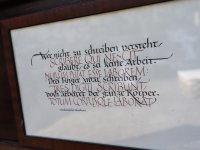 Wer nicht zu schreiben versteht,
SCRIBERE QUI NESCIT
glaubt, es sei keine Arbeit.
NULLUM PUTAT ESSE LABOREM
Drei Finger zwar schreiben,
TRES DIGITI SCRIBUNT
doch arbeitet der ganze Körper.
TOTUM CORPUSQUE LABORAT